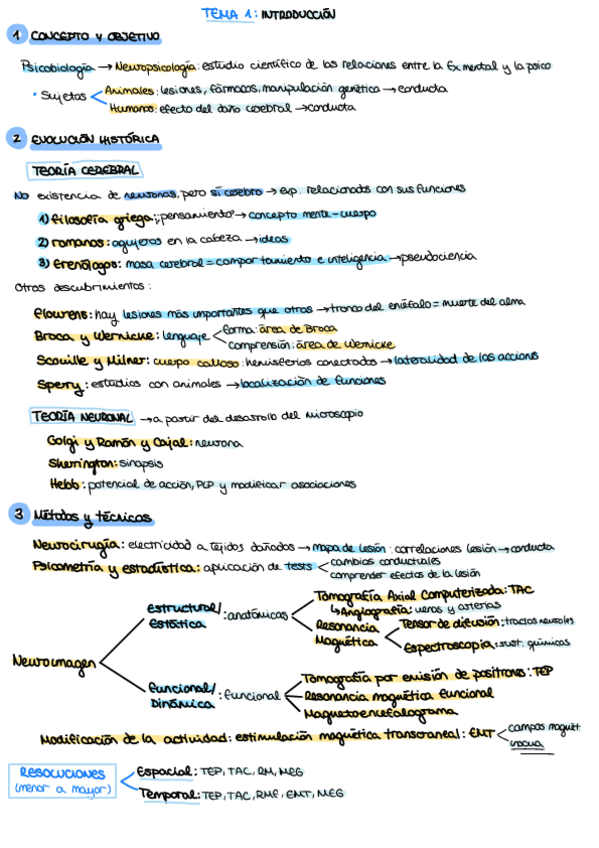 TEMA 1: INTRODUCCIÓN
1 CONCEPTO Y OBJETIVO
Psicobiología → Neuropsicología: estudio científico de las relaciones entre la fx mental y la psico
• Sujetos
Animales: lesiones, fármacos, manipulación genética → conducta
Humanos: efecto del daño cerebral → conducta
2 EVOLUCIÓN HISTÓRICA
TEORÍA CEREBRAL
No existencia de neuronas, pero sí cerebro → exp. relacionados con sus funciones
1) Filosofía griega: pensamiento → concepto mente-cuerpo
2) romanos: agujeros en la cabeza → ideas
3) Frenólogos: masa cerebral = comportamiento e inteligencia → pseudociencia
Otros descubrimientos:
Flourens: hay lesiones más importantes que otras → tronco del encéfalo = muerte del alma
Broca y Wernicke: lenguaje
forma: área de Broca
comprensión: área de Wernicke
Scoville y Milner: cuerpo calloso: hemisferios conectados → lateralidad de las acciones
Sperry: estudios con animales → localización de funciones
TEORÍA NEURONAL → a partir del desarrollo del microscopio
Golgi y Ramón y Cajal: neurona
Sherrington: sinapsis
Hebb: potencial de acción, PLP y modificar asociaciones
3 Métodos y técnicas
Neurocirugía: electricidad a tejidos dañados → mapa de lesión: correlaciones lesión → conducta
Psicometría y estadística: aplicación de tests
cambios conductuales
comprender efectos de la lesión
Neuroimagen
Estructural/Estática: anatómicas
Tomografía Axial Computerizada: TAC
↳ Angiografía: venas y arterias
Resonancia Magnética
Tensor de difusión: tractos neurales
Espectroscopia: sust. químicas
Funcional/Dinámica: funcional
Tomografía por emisión de positrones: TEP
Resonancia magnética funcional
Magnetoencefalograma
Modificación de la actividad: estimulación magnética transcraneal: EMT
campos magnét.
inocua
RESOLUCIONES
(menor a mayor)
Espacial: TEP, TAC, RM, MEG
Temporal: TEP, TAC, RMF, EMT, MEG